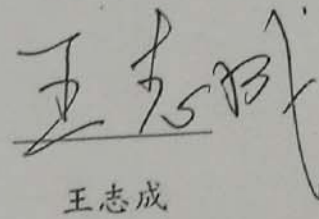 王志成
王志成